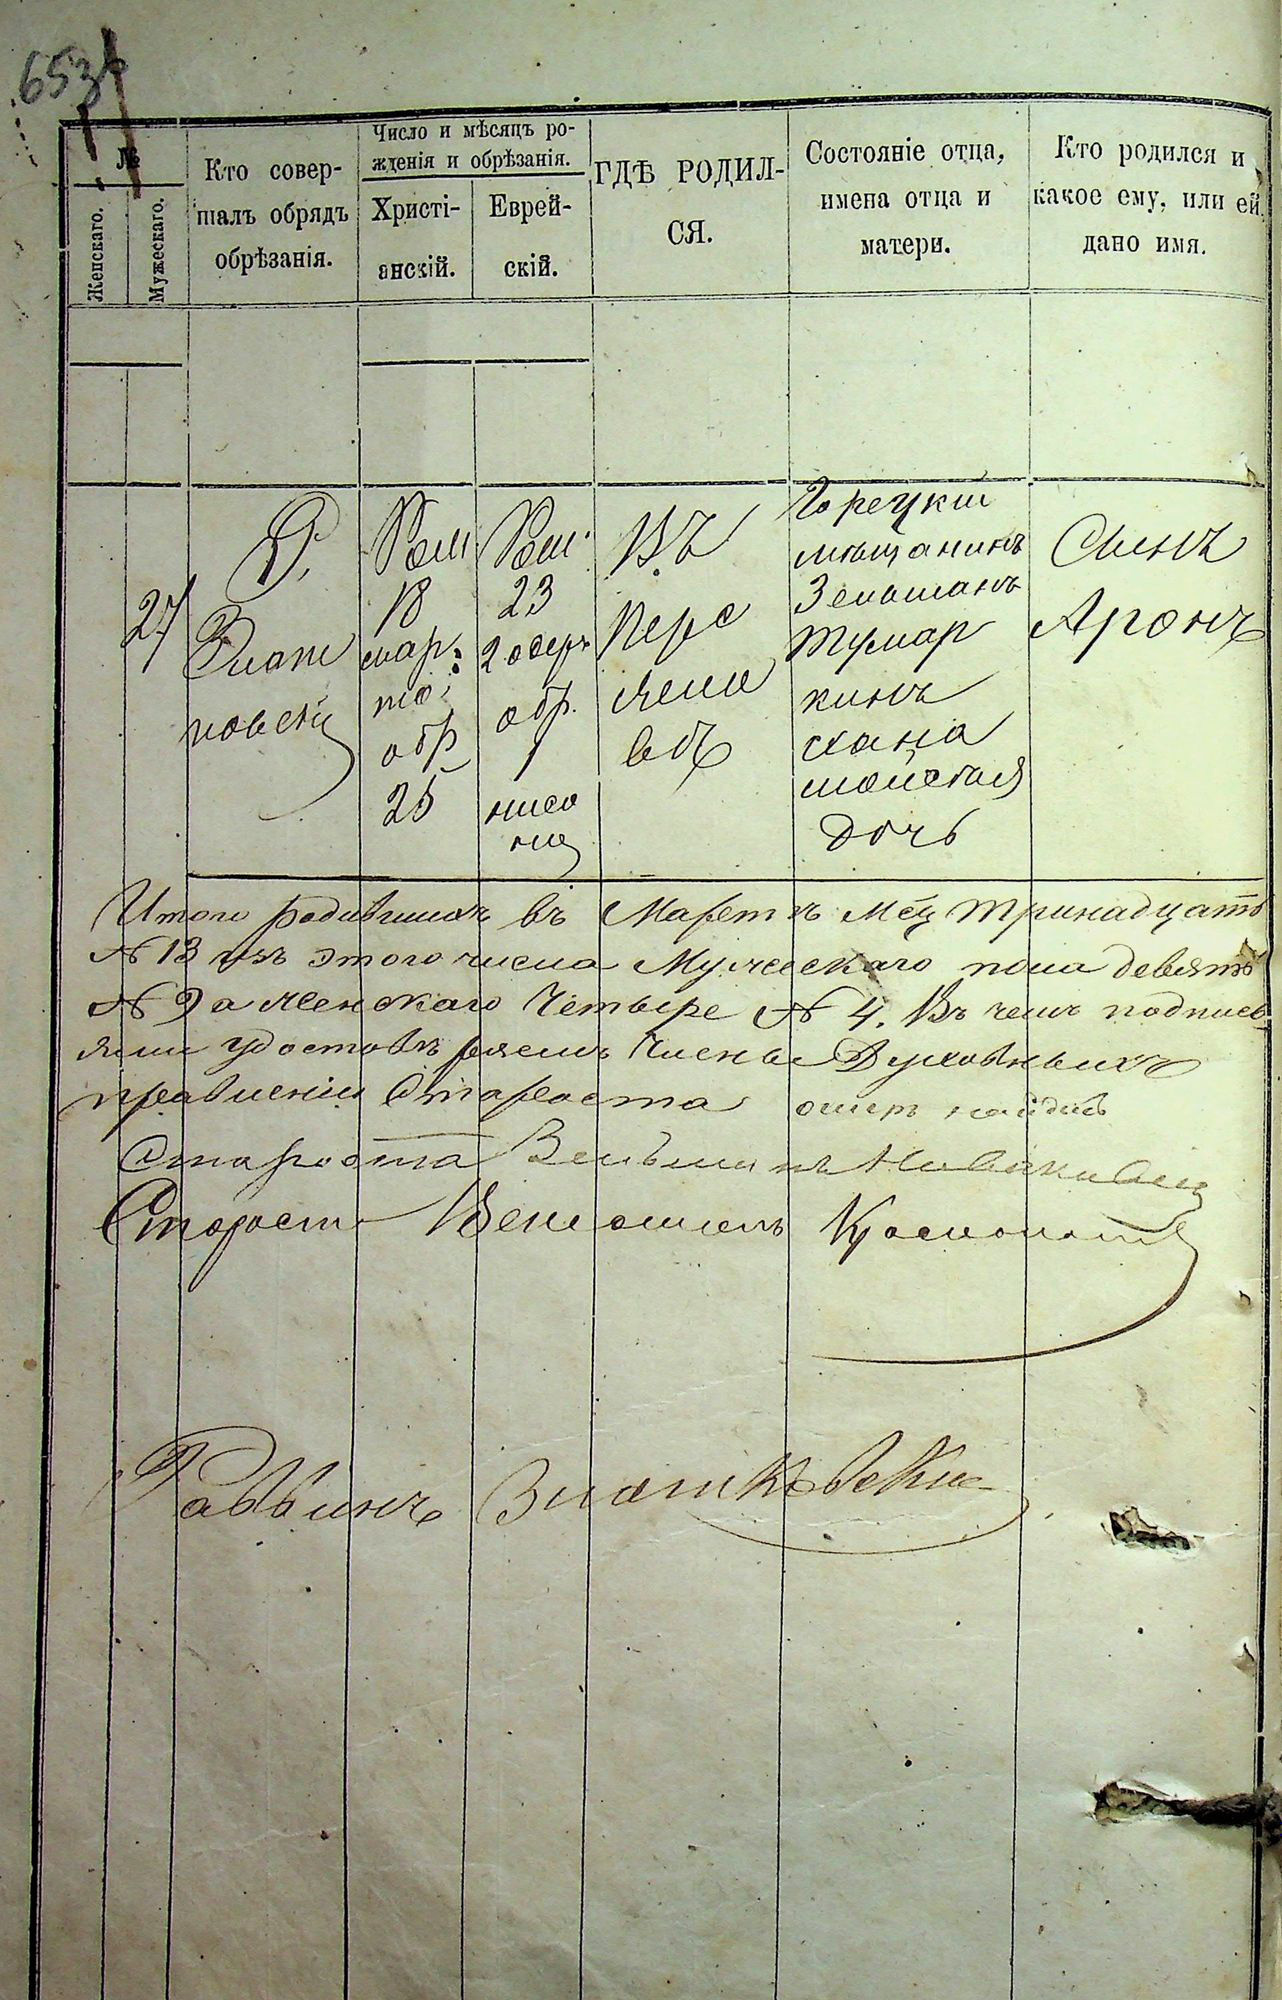 653
№
Женскаго.
Мужескаго.
Кто совер-
шалъ обрядъ
обрѣзанія.
Число и мѣсяцъ ро-
жденія и обрѣзанія.
Христі-
анскій.
Еврей-
скій.
ГДѢ РОДИЛ-
СЯ.
Состояніе отца,
имена отца и
матери.
Кто родился и
какое ему, или ей,
дано имя.
27
Р.
Злат
ковскій
18
мар
та
обр
25
23
2 адеръ
обр.
1
ниса
на
Въ
Горецкій
мѣщанинъ
Зельманъ
Тумар
кинъ
хана
дочь
Сынъ
Аронъ
Итого родившихъ въ Мартѣ Мсц тринадцать
№ 13 изъ этого числа Мужескаго пола девять
№ 9 а женскаго Четыре № 4. Въ чемъ подпись
ями удостовѣряемъ Члены Духовныхъ
правленіи Староста
Староста Зельманъ
Староста Веніоминъ
Раввинъ Златковскій